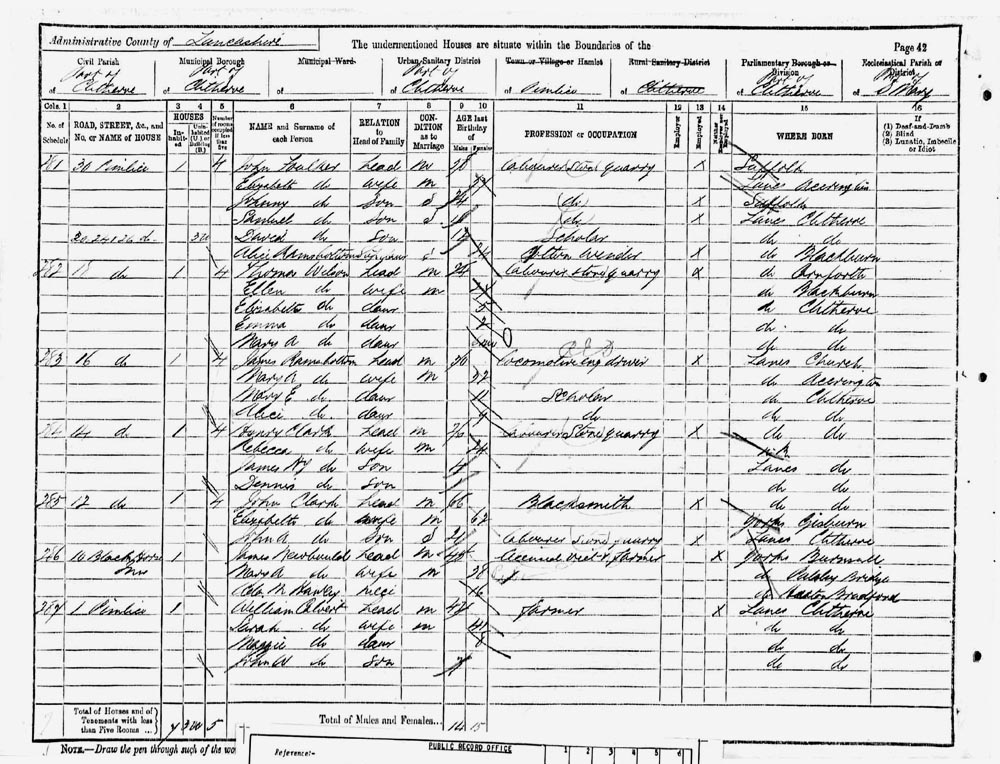 Administrative County of Lancashire
The undermentioned Houses are situate within the Boundaries of the
Page 42
Civil Parish Municipal Borough Municipal Ward Urban Sanitary District Town or Village or Hamlet Rural Sanitary District Parliamentary Borough or Division Ecclesiastical Parish or District
Part of Clitheroe Part of Clitheroe of Part of Clitheroe of Pimlico of Clitheroe Part of Clitheroe Part of S. Mary
Cols. 1 2 3 4 5 6 7 8 9 10 11 12 13 14 15 16
No. of Schedule ROAD, STREET, &c., and No. or NAME of HOUSE HOUSES Inhabited Uninhabited (U.) or Building (B.) Number of rooms occupied if less than five NAME and Surname of each Person RELATION to Head of Family CONDITION as to Marriage AGE last Birthday of Males Females PROFESSION or OCCUPATION Employer Employed Neither Employer nor Employed WHERE BORN If (1) Deaf-and-Dumb (2) Blind (3) Lunatic, Imbecile or Idiot
281 30 Pimlico 4 John Head M labourer Stone quarry X Suffolk
Elizabeth do wife M Lancs Accrington
Johnny do Son S 24 do X Suffolk
Samuel do Son S do X Lancs Clitheroe
20.24 & 26 do 3U David do Son 14 Scholar do do
Alice Ramsbottom S 24 Cotton Winder X do Blackburn
282 18 do 1 4 Thomas Wilson Head M 24 labourer Stone quarry X do
Ellen do wife M do Blackburn
Elizabeth do daur 5 do Clitheroe
Emma do daur 2 do do
Mary A do daur do do
283 16 do 1 4 James Ramsbottom Head M locomotive eng driver X Lancs Church
Mary A do wife M 32 do Accrington
Mary E do daur 11 Scholar do Clitheroe
Alice do daur 9 do do do
284 14 do 1 4 Henry Clark Head M 26 labourer Stone quarry X do do
Rebecca do wife M 24
James Hy do Son 4 Lancs do
Dennis do Son 1 do do
285 12 do 1 4 John Clark Head M 66 Blacksmith X do do
Elizabeth do wife M 62 Yorks Gisburn
John A do Son S labourer Stone quarry X Lancs Clitheroe
286 10 Black Horse Inn 1 James Newbould Head M Licensed Vict & farmer X Yorks
Mary A do wife M 28 do Bridge
Ada M Niece 16 do Bradford
287 1 Pimlico 1 William Calvert Head M farmer X Lancs Clitheroe
Sarah do wife M do do
Maggie do daur do do
John W do Son do do
Total of Houses and of Tenements with less than Five Rooms ... 7 3U 5
Total of Males and Females... 14 15
NOTE.—Draw the pen through such of the wo
Reference:-
PUBLIC RECORD OFFICE
1 2 3 4 5 6